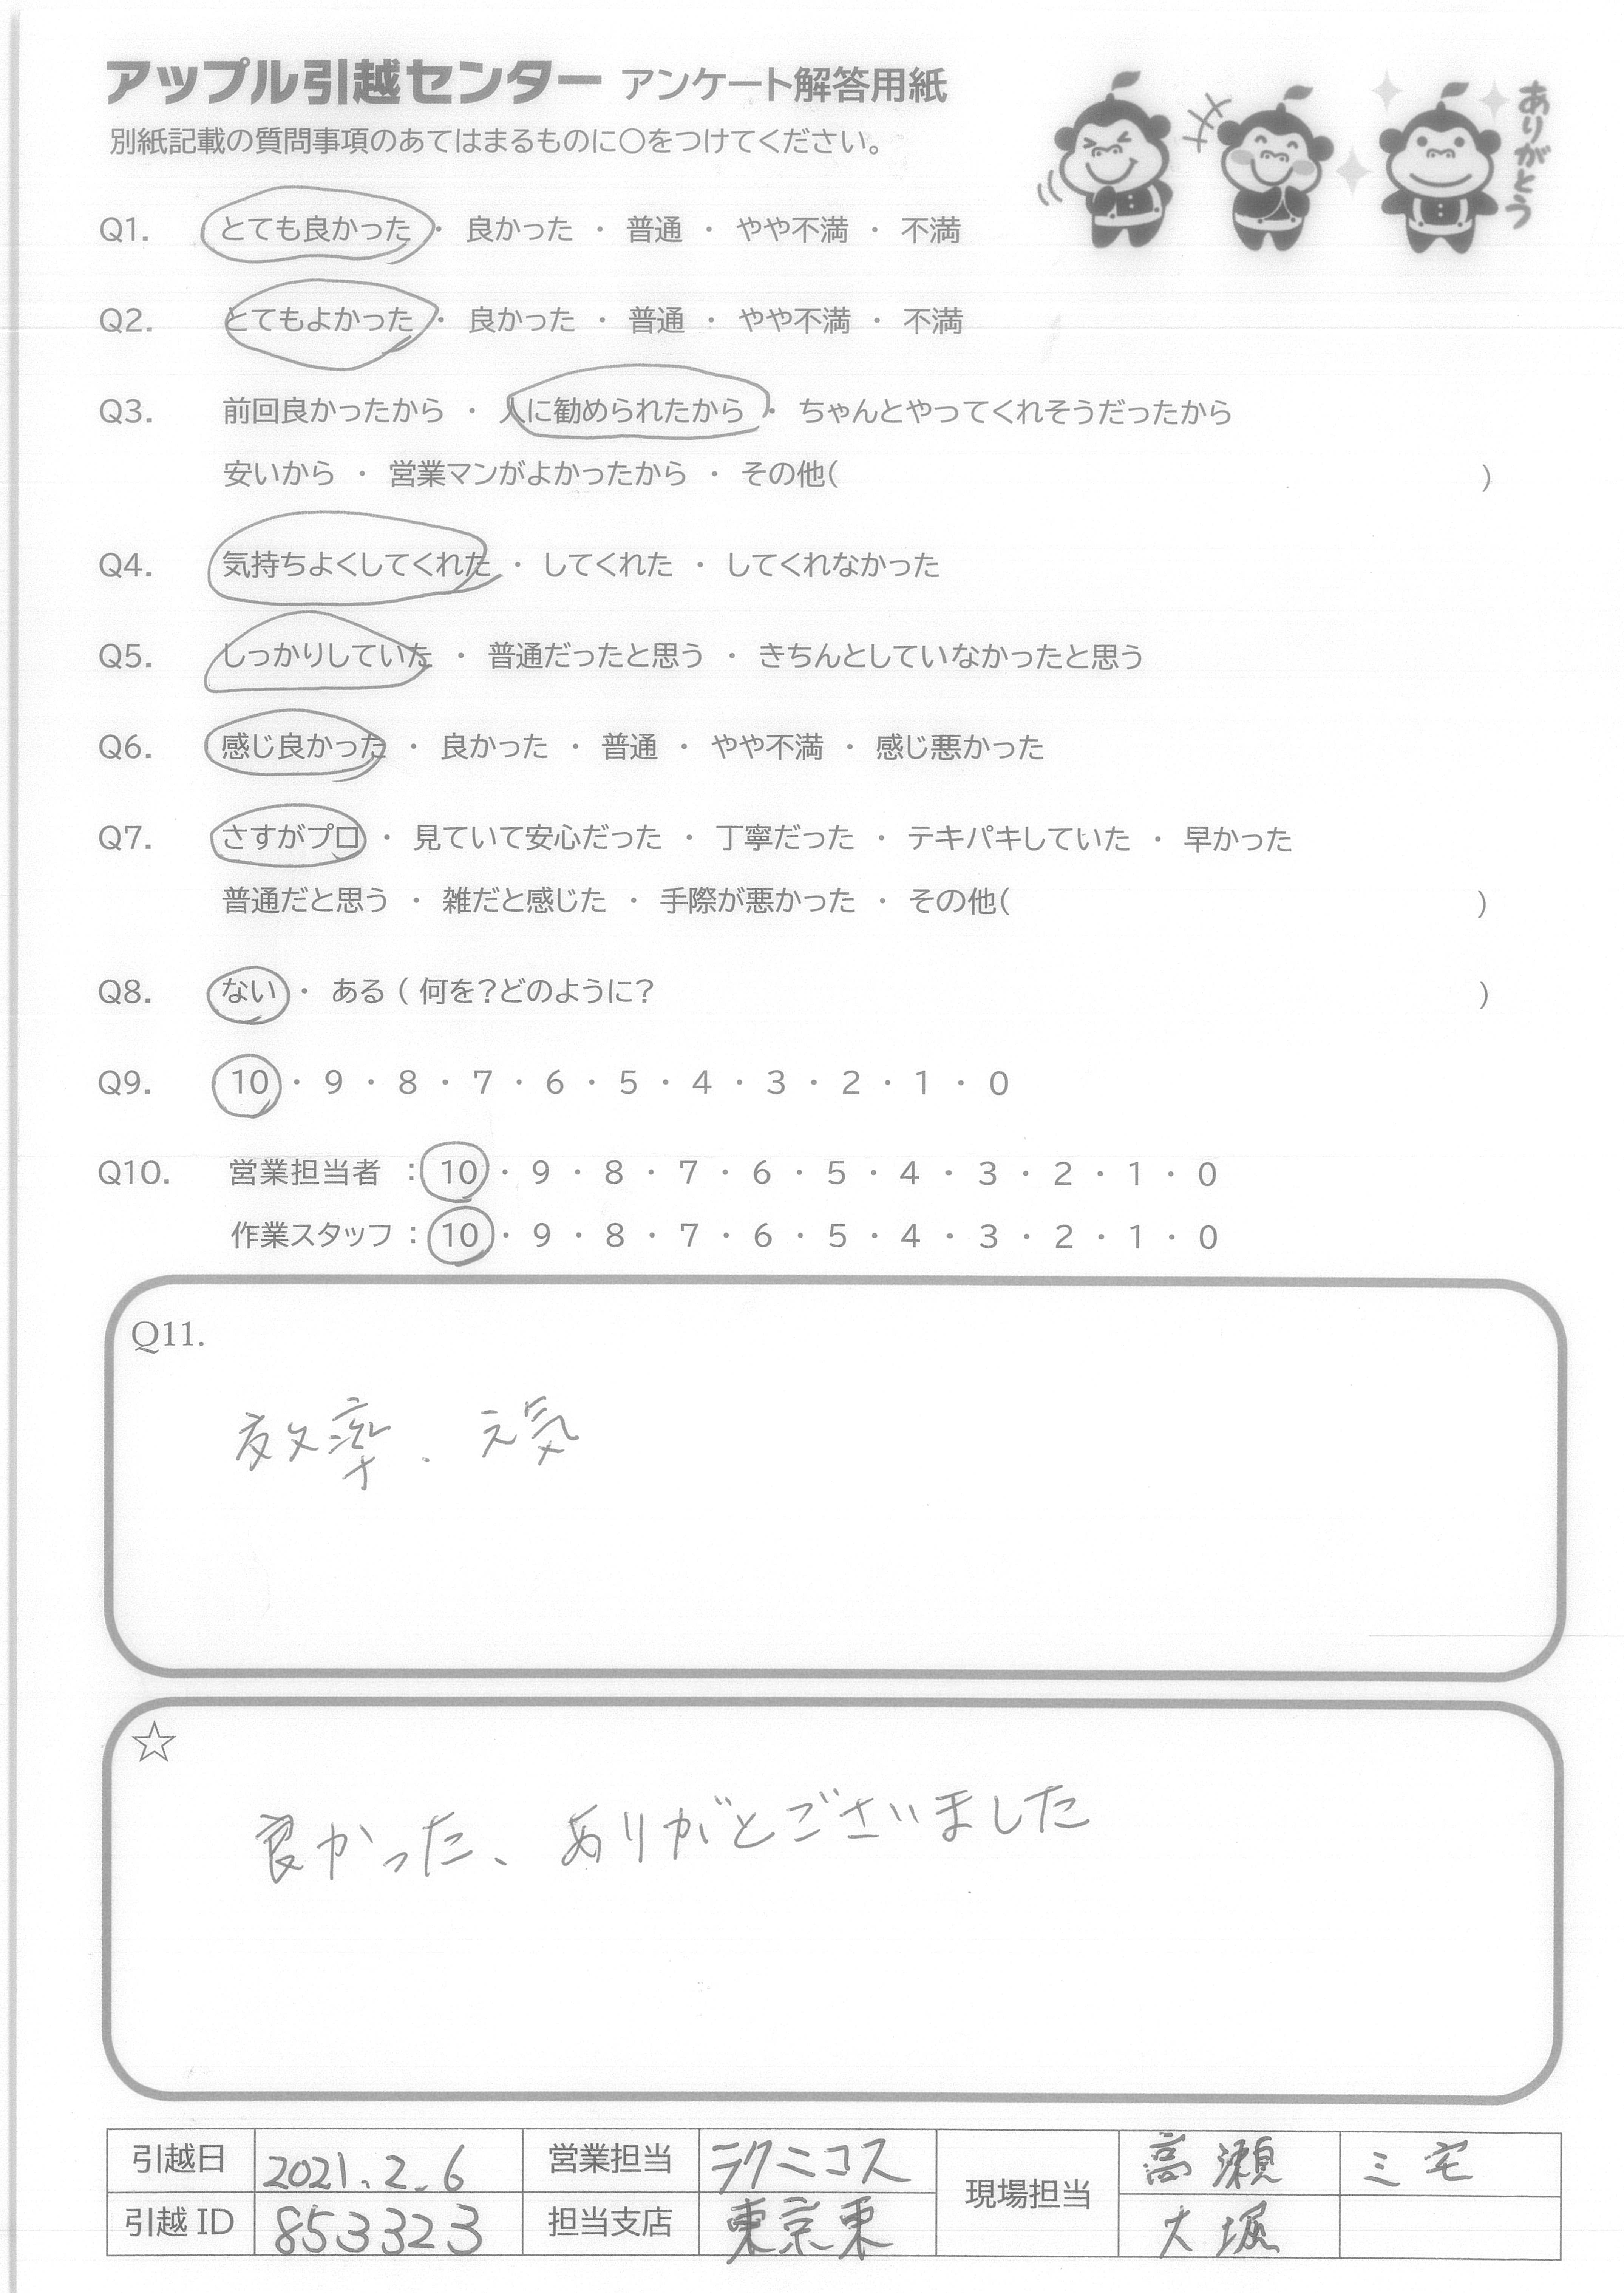 アップル引越センター アンケート解答用紙
別紙記載の質問事項のあてはまるものに○をつけてください。
ありがとう
Q1. とても良かった ・ 良かった ・ 普通 ・ やや不満 ・ 不満
Q2. とてもよかった ・ 良かった ・ 普通 ・ やや不満 ・ 不満
Q3. 前回良かったから ・ 人に勧められたから ・ ちゃんとやってくれそうだったから
安いから ・ 営業マンがよかったから ・ その他( )
Q4. 気持ちよくしてくれた ・ してくれた ・ してくれなかった
Q5. しっかりしていた ・ 普通だったと思う ・ きちんとしていなかったと思う
Q6. 感じ良かった ・ 良かった ・ 普通 ・ やや不満 ・ 感じ悪かった
Q7. さすがプロ ・ 見ていて安心だった ・ 丁寧だった ・ テキパキしていた ・ 早かった
普通だと思う ・ 雑だと感じた ・ 手際が悪かった ・ その他( )
Q8. ない ・ ある ( 何を?どのように? )
Q9. 10 ・ 9 ・ 8 ・ 7 ・ 6 ・ 5 ・ 4 ・ 3 ・ 2 ・ 1 ・ 0
Q10. 営業担当者 : 10 ・ 9 ・ 8 ・ 7 ・ 6 ・ 5 ・ 4 ・ 3 ・ 2 ・ 1 ・ 0
作業スタッフ : 10 ・ 9 ・ 8 ・ 7 ・ 6 ・ 5 ・ 4 ・ 3 ・ 2 ・ 1 ・ 0
Q11.
効率. 元気
☆
良かった、ありがとございました
引越日 2021.2.6 営業担当 現場担当 高瀬 三宅
引越 ID 853323 担当支店 東京東 大堀